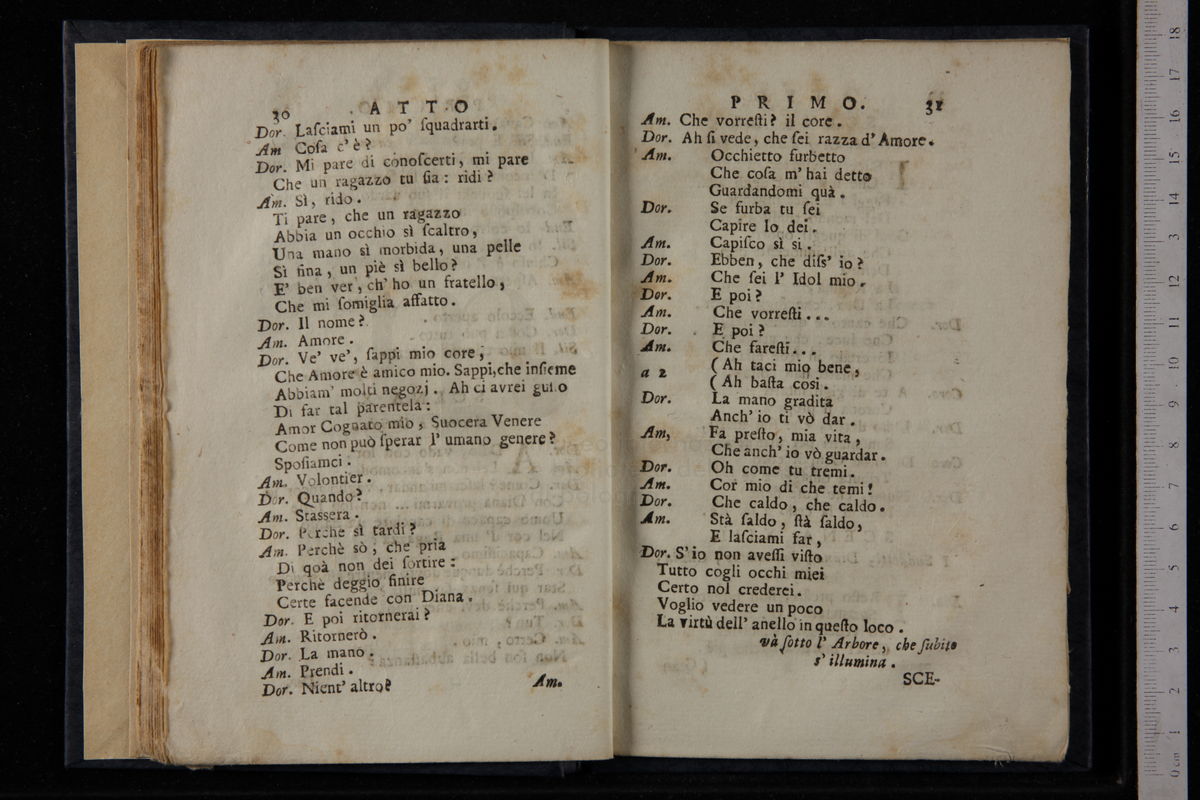 30 ATTO
Dor. Laſciami un po' ſquadrarti.
Am Coſa c'è?
Dor. Mi pare di conoſcerti, mi pare
Che un ragazzo tu ſia: ridi?
Am. Sì, rido.
Ti pare, che un ragazzo
Abbia un occhio sì ſcaltro,
Una mano sì morbida, una pelle
Sì fina, un piè sì bello?
E' ben ver, ch' ho un fratello,
Che mi ſomiglia affatto.
Dor. Il nome?
Am. Amore.
Dor. Ve' ve', ſappi mio core,
Che Amore è amico mio. Sappi, che inſieme
Abbiam' molti negozj. Ah ci avrei
Di far tal parentela:
Amor Cognato mio, Suocera Venere
Come non può ſperar l' umano genere?
Spoſiamci.
Am. Volontier.
Dor. Quando?
Am. Stassera.
Dor. Perchè sì tardi?
Am. Perchè sò, che pria
Di quà non dei ſortire:
Perchè deggio finire
Certe facende con Diana.
Dor. E poi ritornerai?
Am. Ritornerò.
Dor. La mano.
Am. Prendi.
Dor. Nient' altro?
Am.
PRIMO. 31
Am. Che vorreſti? il core.
Dor. Ah ſi vede, che ſei razza d' Amore.
Am. Occhietto furbetto
Che coſa m' hai detto
Guardandomi quà.
Dor. Se furba tu ſei
Capire lo dei.
Am. Capiſco sì si.
Dor. Ebben, che diſs' io?
Am. Che ſei l' Idol mio.
Dor. E poi?
Am. Che vorreſti...
Dor. E poi?
Am. Che fareſti...
a 2 (Ah taci mio bene,
(Ah baſta così.
Dor. La mano gradita
Anch' io ti vò dar.
Am, Fa preſto, mia vita,
Che anch' io vò guardar.
Dor. Oh come tu tremi.
Am. Cor mio di che temi!
Dor. Che caldo, che caldo.
Am. Stà ſaldo, ſtà ſaldo,
E laſciami far,
Dor. S' io non aveſſi viſto
Tutto cogli occhi miei
Certo nol crederei.
Voglio vedere un poco
La virtù dell' anello in queſto loco.
và ſotto l' Arbore, che ſubito
s' illumina.
SCE-
0 cm 1 2 3 4 5 6 7 8 9 10 11 12 13 14 15 16 17 18